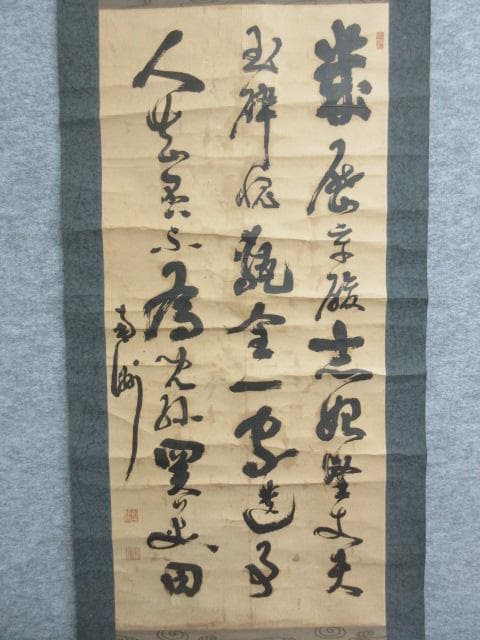 幾歴辛酸志始堅丈夫
玉碎愧甎全一家遺事
人知否不為兒孫買美田
南洲